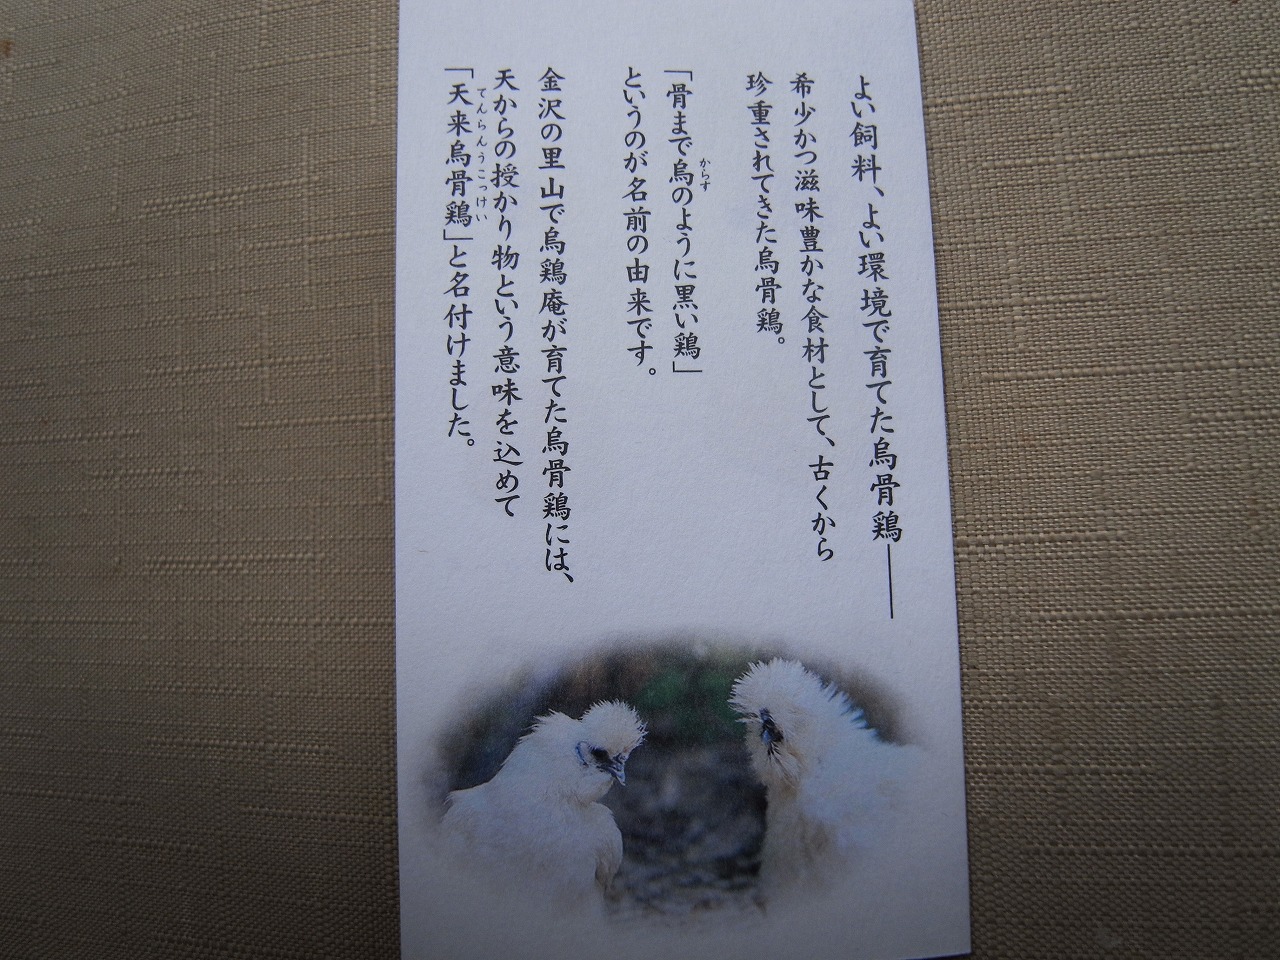 よい飼料、よい環境で育てた烏骨鶏――
希少かつ滋味豊かな食材として、古くから
珍重されてきた烏骨鶏。
「骨まで烏のように黒い鶏」
からす
というのが名前の由来です。
金沢の里山で烏鶏庵が育てた烏骨鶏には、
天からの授かり物という意味を込めて
「天来烏骨鶏」と名付けました。
てんらんうこっけい